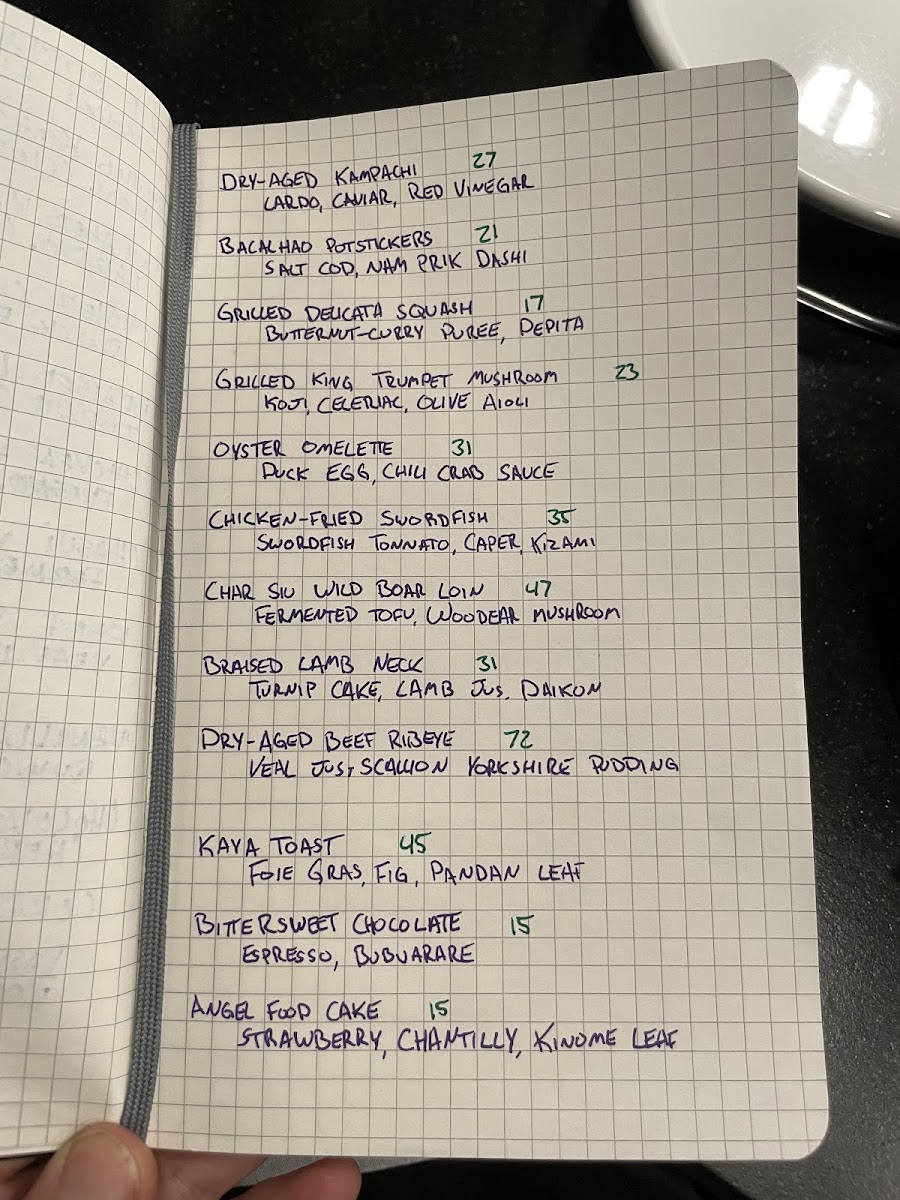 DRY-AGED KAMPACHI 27
LARDO, CAVIAR, RED VINEGAR
BACALHAO POTSTICKERS 21
SALT COD, NAM PRIK DASHI
GRILLED DELICATA SQUASH 17
BUTTERNUT-CURRY PUREE, PEPITA
GRILLED KING TRUMPET MUSHROOM 23
KOJI, CELERIAC, OLIVE AIOLI
OYSTER OMELETTE 31
DUCK EGG, CHILI CRAB SAUCE
CHICKEN-FRIED SWORDFISH 35
SWORDFISH TONNATO, CAPER, KIZAMI
CHAR SIU WILD BOAR LOIN 47
FERMENTED TOFU, WOODEAR MUSHROOM
BRAISED LAMB NECK 31
TURNIP CAKE, LAMB JUS, DAIKON
DRY-AGED BEEF RIBEYE 72
VEAL JUS, SCALLION YORKSHIRE PUDDING
KAYA TOAST 45
FOIE GRAS, FIG, PANDAN LEAF
BITTERSWEET CHOCOLATE 15
ESPRESSO, BUBUARARE
ANGEL FOOD CAKE 15
STRAWBERRY, CHANTILLY, KINOME LEAF